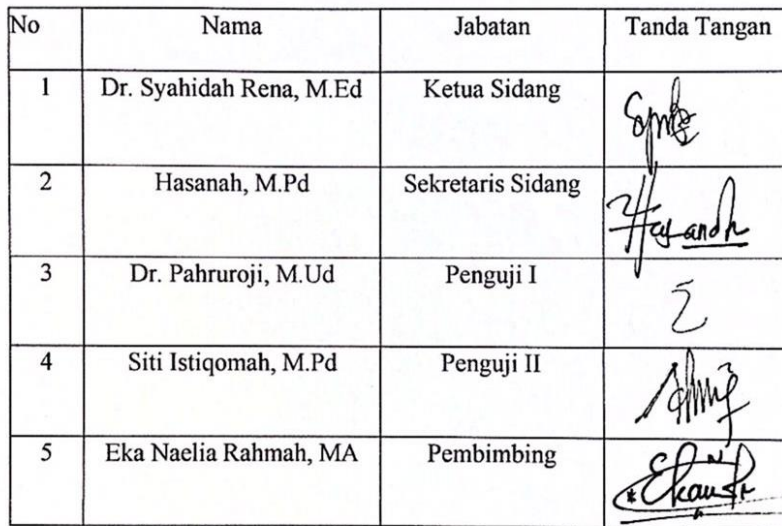 No Nama Jabatan Tanda Tangan
1 Dr. Syahidah Rena, M.Ed Ketua Sidang
2 Hasanah, M.Pd Sekretaris Sidang
3 Dr. Pahruroji, M.Ud Penguji I
4 Siti Istiqomah, M.Pd Penguji II
5 Eka Naelia Rahmah, MA Pembimbing